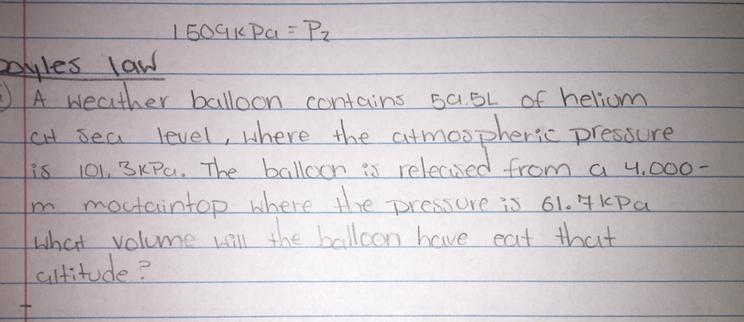 1509kPa = P2
Boyles law
A weather balloon contains 59.5L of helium
at sea level, where the atmospheric pressure
is 101.3kPa. The balloon is released from a 4,000-
m moutaintop where the pressure is 61.7kPa
what volume will the balloon have eat that
altitude?